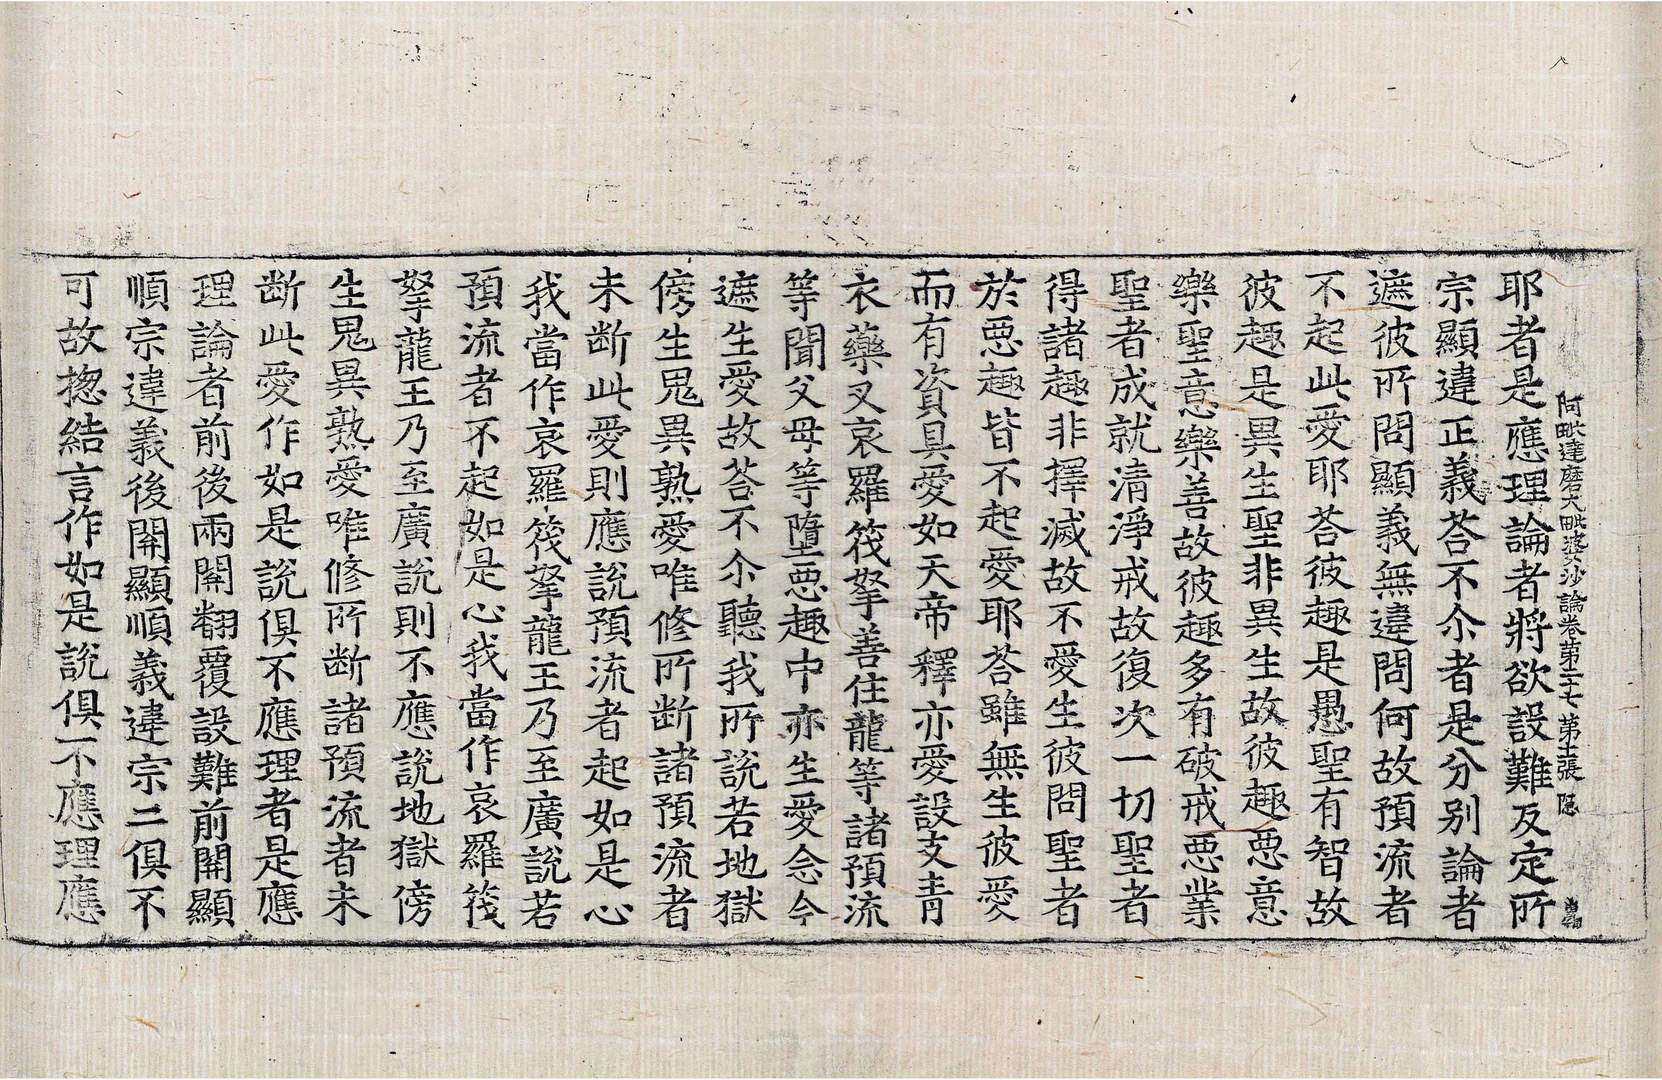 阿毗達磨大毗婆沙論卷第二十七 第十張 隱
耶者是應理論者將欲設難反定所
宗顯違正義荅不尒者是分别論者
遮彼所問顯義無違問何故預流者
不起此愛耶荅彼趣是愚聖有智故
彼趣是異生聖非異生故彼趣惡意
樂聖意樂善故彼趣多有破戒惡業
聖者成就清淨戒故復次一切聖者
得諸趣非擇滅故不愛生彼問聖者
於惡趣皆不起愛耶荅雖無生彼愛
而有資具愛如天帝釋亦愛設支青
衣藥叉哀羅筏拏善住龍等諸預流
等聞父母等墮惡趣中亦生愛念今
遮生愛故荅不尒聽我所說若地獄
傍生鬼異熟愛唯修所斷諸預流者
未斷此愛則應說預流者起如是心
我當作哀羅筏拏龍王乃至廣說若
預流者不起如是心我當作哀羅筏
拏龍王乃至廣說則不應說地獄傍
生鬼異熟愛唯修所斷諸預流者未
斷此愛作如是說俱不應理者是應
理論者前後兩關翻覆設難前關顯
順宗違義後關顯順義違宗二俱不
可故揔結言作如是說俱不應理應